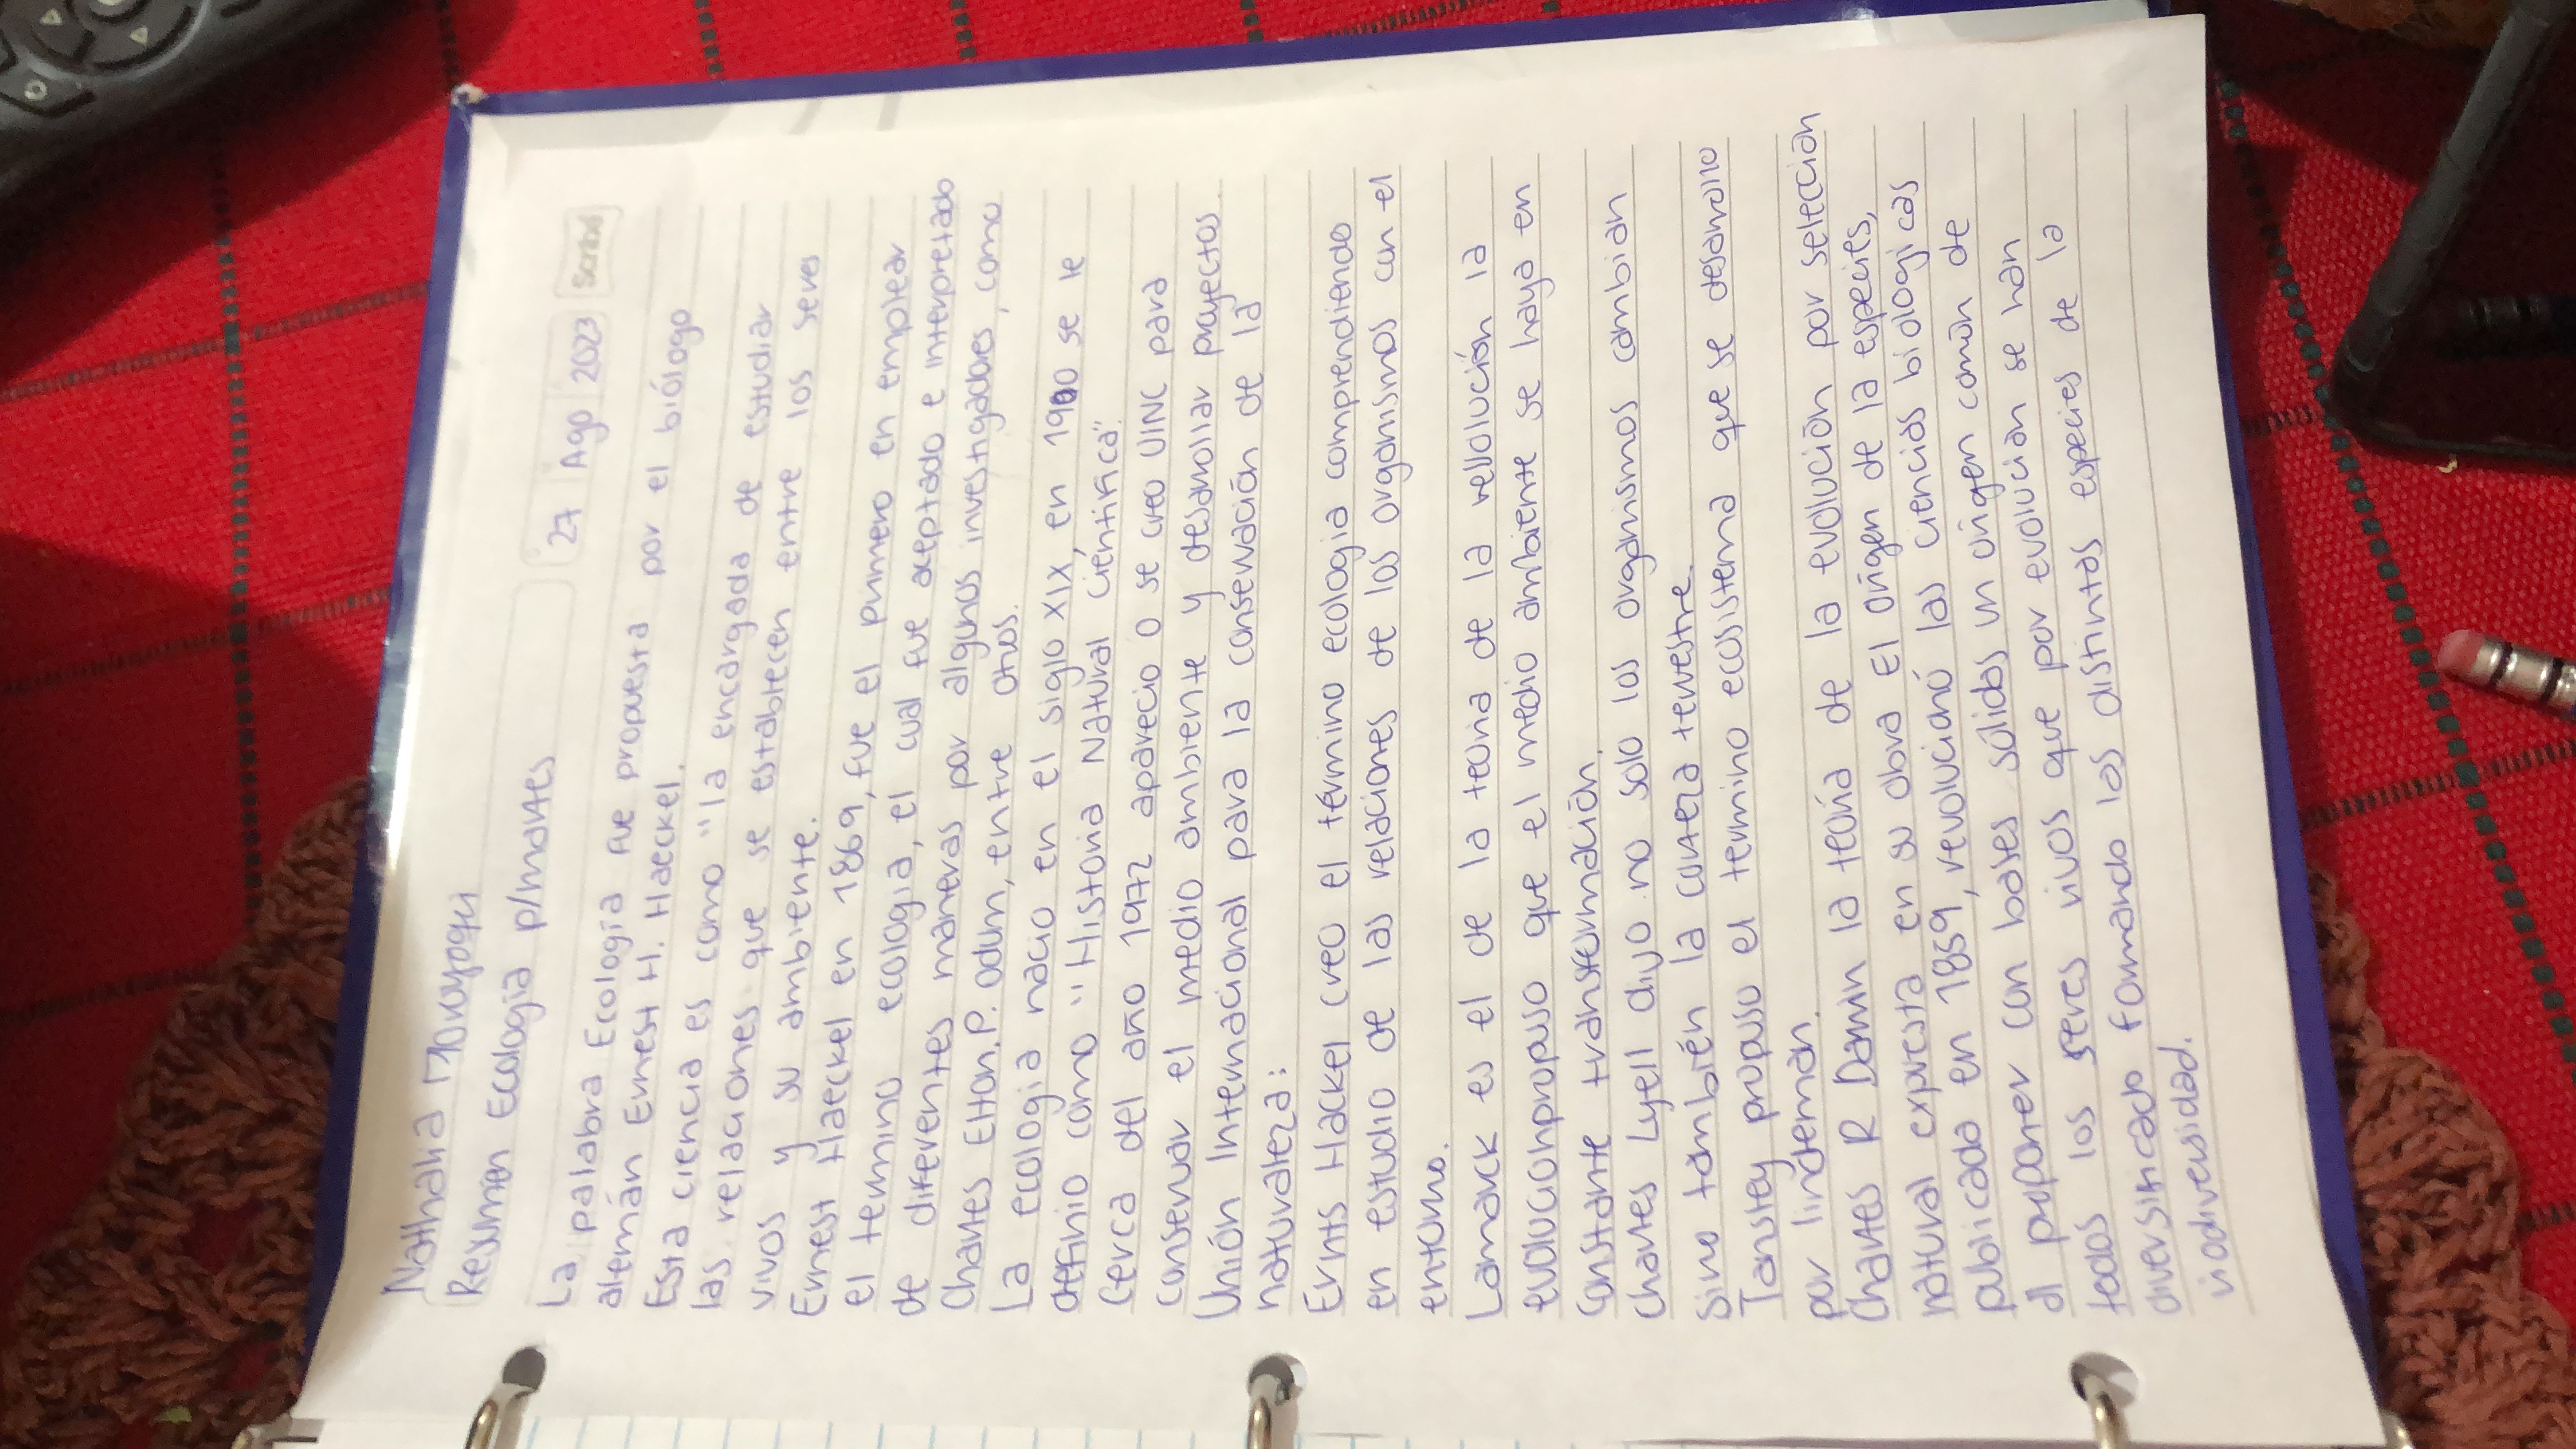 Nathalia Moruyoqui
Resumen Ecologia p/martes
27 Ago 2023 Scribe
La palabra Ecología fue propuesta por el biólogo
alemán Ernest H. Haeckel.
Esta ciencia es como "la encargada de estudiar
las relaciones que se establecen entre los seres
vivos y su ambiente.
Ernest Haeckel en 1869, fue el primero en emplear
el termino ecologia, el cual fue aceptado e interpretado
de diferentes maneras por algunos investigadores, como
Charles Elton, P. Odum, entre otros.
La ecologia nacio en el siglo XIX, en 1900 se le
definio como "Historia Natural Cientifica".
Cerca del año 1972 aparecio o se creo UINC para
conservar el medio ambiente y desarrollar proyectos.
Unión Internacional para la conservación de la
naturaleza:
Ernts Hackel creo el término ecologia comprendiendo
en estudio de las relaciones de los organismos con el
entorno.
Lamarck es el de la teoria de la rellolución la
evolucionpropuso que el medio ambiente se haya en
Constante transformación.
Charles Lyell dijo no solo los organismos cambian
Sino también la corteza terrestre.
Tansley propuso el termino ecosistema que se desarrollo
por lindeman.
Charles R Darwin la teoría de la evolución por selección
natural expresta en su obra El origen de la especies,
publicada en 1859, revolucionó las ciencias biologicas
al proponer con bases sólidas un origen común de
todos los seres vivos que por evolución se han
diversificado formando las distintas especies de la
viodiversidad.